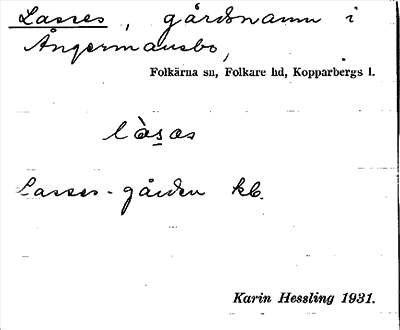 Lasses, gårdsnamn i
Ångermansbo,
Folkärna sn, Folkare hd, Kopparbergs l.
làsas
Lasses-gården kb.
Karin Hessling 1931.